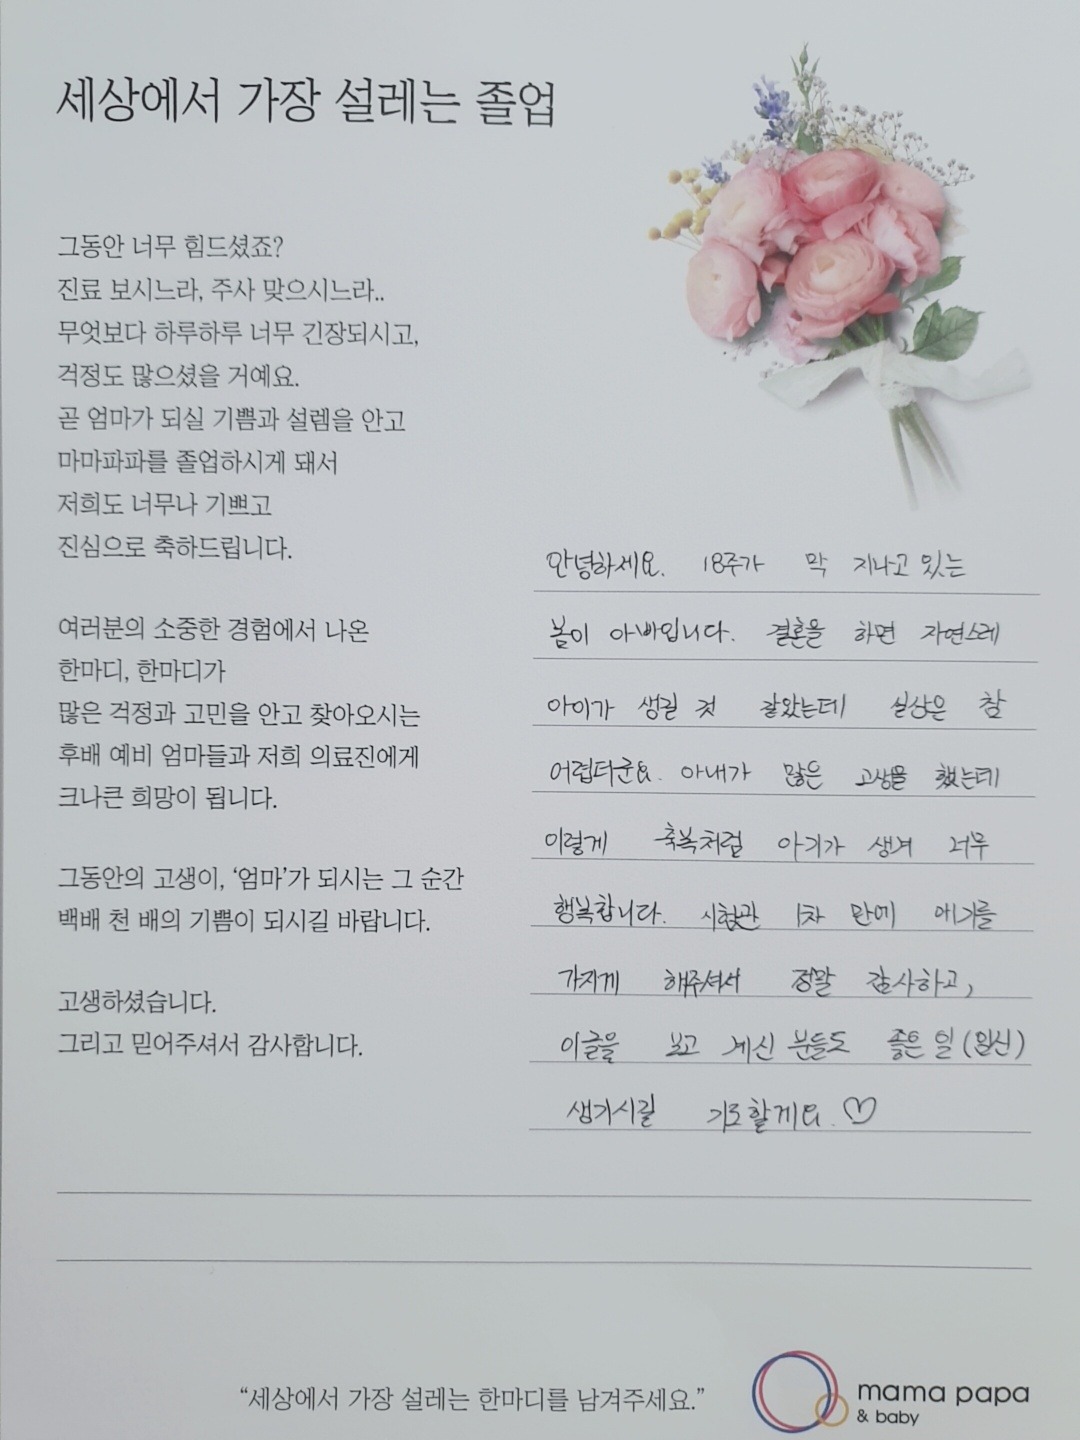 세상에서 가장 설레는 졸업
그동안 너무 힘드셨죠?
진료 보시느라, 주사 맞으시느라..
무엇보다 하루하루 너무 긴장되시고,
걱정도 많으셨을 거예요.
곧 엄마가 되실 기쁨과 설렘을 안고
마마파파를 졸업하시게 돼서
저희도 너무나 기쁘고
진심으로 축하드립니다.
여러분의 소중한 경험에서 나온
한마디, 한마디가
많은 걱정과 고민을 안고 찾아오시는
후배 예비 엄마들과 저희 의료진에게
크나큰 희망이 됩니다.
그동안의 고생이, ‘엄마’가 되시는 그 순간
백배 천 배의 기쁨이 되시길 바랍니다.
고생하셨습니다.
그리고 믿어주셔서 감사합니다.
안녕하세요. 18주가 막 지나고 있는
봄이 아빠입니다. 결혼을 하면 자연스레
아이가 생길 것 같았는데 실상은 참
어렵더군요. 아내가 많은 고생을 했는데
이렇게 축복처럼 아기가 생겨 너무
행복합니다. 시험관 1차 만에 애기를
가지게 해주셔서 정말 감사하고,
이글을 보고 계신 분들도 좋은 일 (임신)
생기시길 기도할게요. ♡
“세상에서 가장 설레는 한마디를 남겨주세요.”
mama papa
& baby